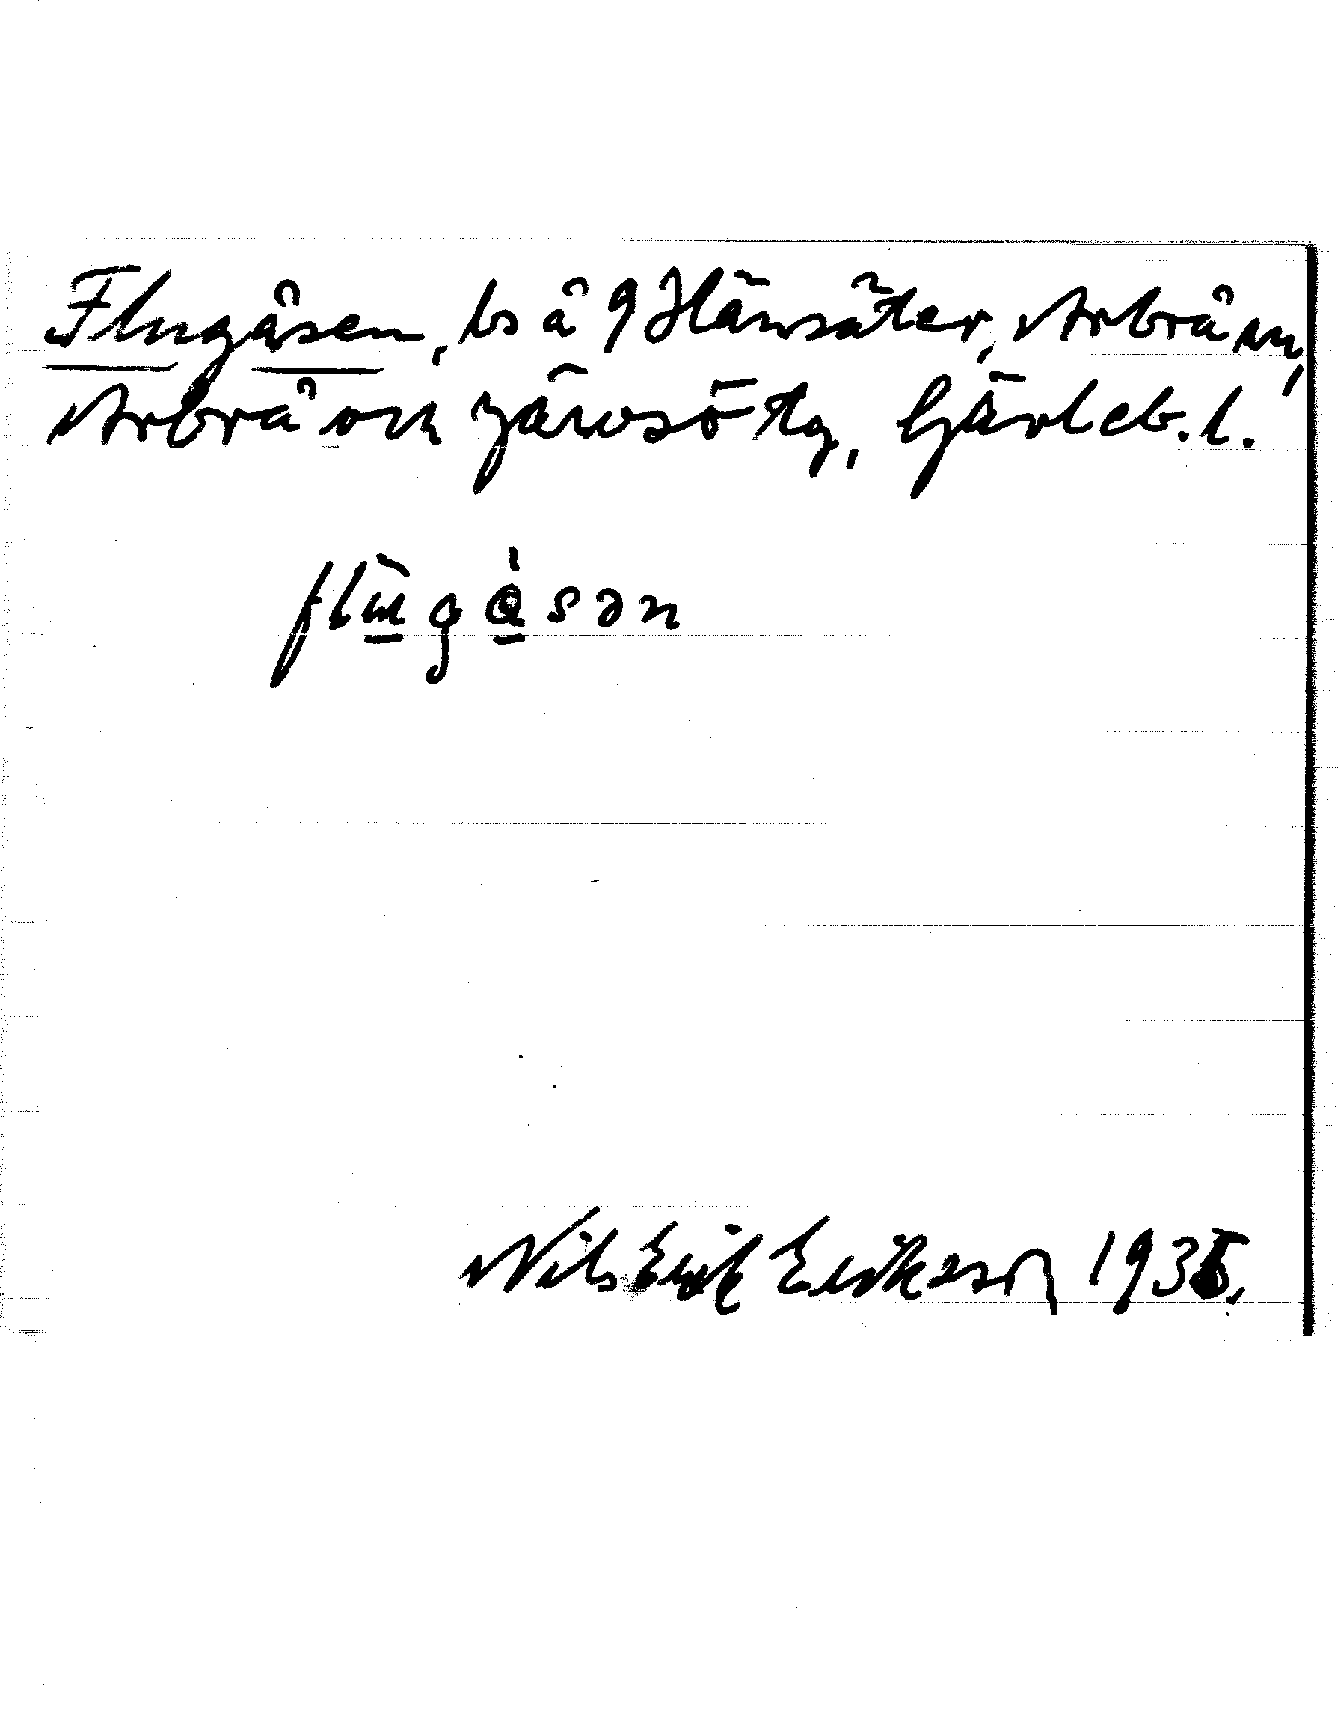 Flugåsen, bs å 9 Hänsäter, Arbrå sn,
Arbrå och Järvsö tg, Gävleb. l.
flùgå̀sən
Nils Erik Erikson 1935.